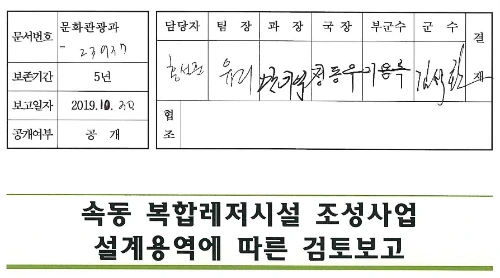 문서번호 문화관광과
- 23937
보존기간 5년
보고일자 2019.10.30
공개여부 공 개
담당자 팀 장 과 장 국 장 부군수 군 수 결재
협조
속동 복합레저시설 조성사업
설계용역에 따른 검토보고